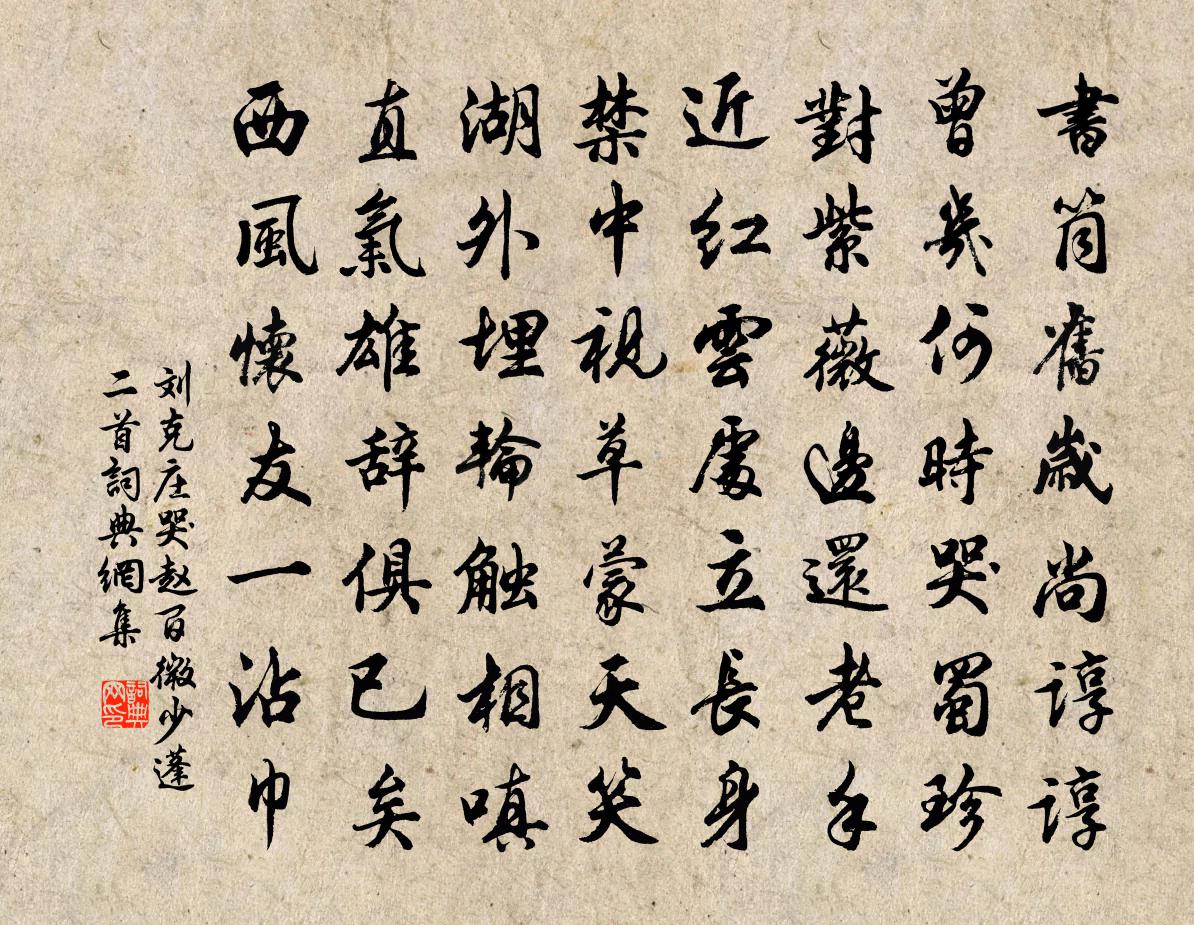 書筒舊歲尚諄諄
曾幾何時哭蜀珍
對紫薇邊還老手
近红雲處立長身
禁中視草蒙天笑
湖外埋輪触相嗔
直氣雄辞俱已矣
西風懷友一沾巾
刘克庄哭赵百微少蓬
二首詞典網集
詞典网印